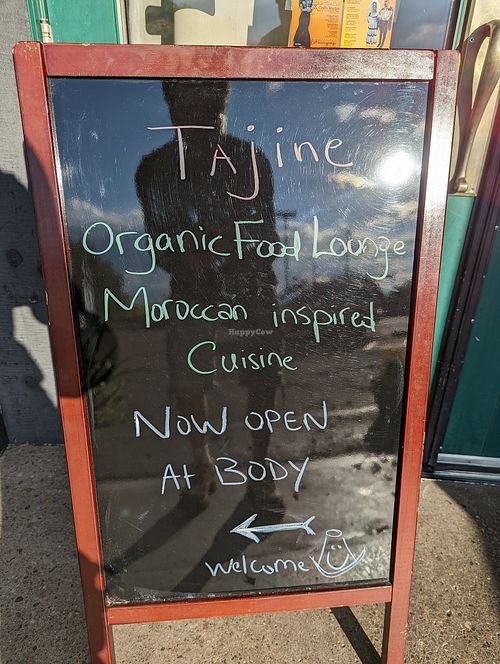 Tajine
Organic Food Lounge
Moroccan inspired
Cuisine
NOW OPEN
At BODY
welcome
HappyCow